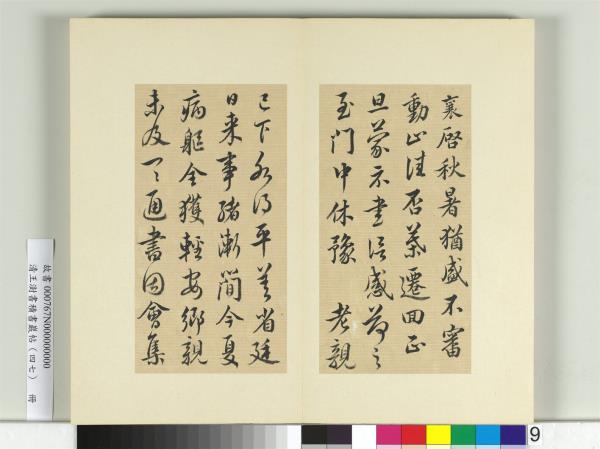 襄啓秋暑猶盛不審
動止佳否葉遷回正
旦蒙示書信感尉之
至門中休豫 老親
已下各得平善省廷
日来事緒漸簡今夏
病軀全獲輕安鄉親
未及一一通書因會集
故書000767N000000000
清王澍書積書巖帖（四七） 冊
9